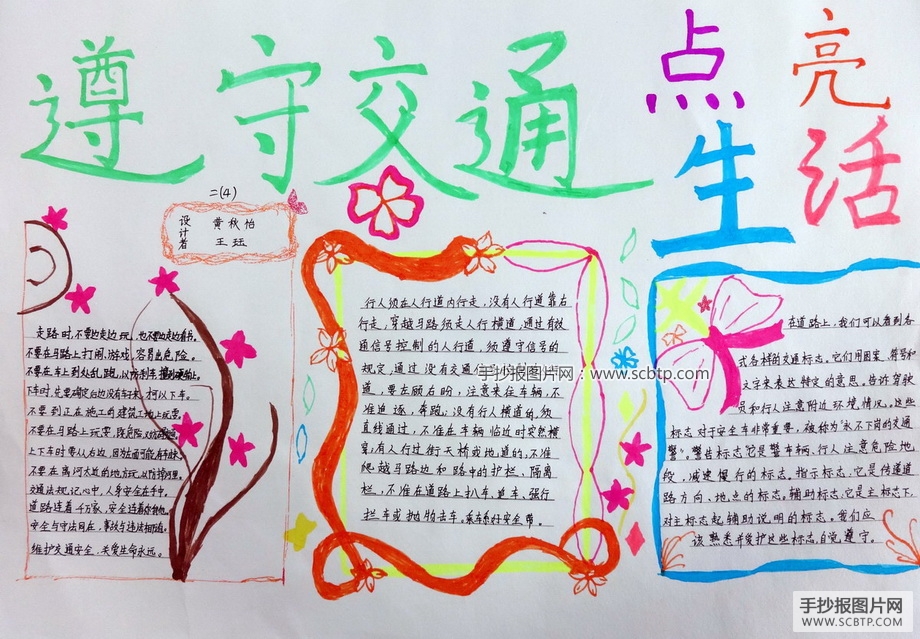 遵守交通
点亮
生活
二(4)
设计者
黄秋怡
王珏
走路时,不要边走边玩,也不要边走边看书。
不要在马路上打闹、游戏,容易出危险。
不要在车上到处乱跑,以防刹车
下车时,先要确定台地没有车子来,才可以下车。
不要到正在施工的建筑工地上玩耍。
不要在马路上玩耍,既危险又妨碍交通。
上下车时要从右边,因为左面可能有车开来。
不要在离河太近的地方玩,以防掉河里。
交通法规,记心中,人身安全在手中。
道路连着千万家,安全连着你我他。
安全与守法同在,事故与违法相随。
维护交通安全,关爱生命永远。
行人须在人行道内行走,没有人行道靠右
行走,穿越马路须走人行横道,通过有效
通信号控制的人行道,须遵守信号的
规定,通过没有交通
道,要左顾右盼,注意来往车辆,不
准追逐,奔跑。没有人行横道的,须
直线通过,不准在车辆临近时突然横
穿;有人行过街天桥或地道的,不准
爬越马路边和路中的护栏、隔离
栏,不准在道路上扒车、追车、强行
拦车或抛物击车。乘车系好安全带。
在道路上,我们可以看到各
式各样的交通标志,它们用图案、符号和
文字来表达特定的意思。告诉驾驶
员和行人注意附近环境情况。这些
标志对于安全有非常重要,被称为“永不下岗的交通
警”。警告标志它是警车辆、行人注意危险地
段,减速慢行的标志。指示标志,它是传递道
路方向、地点的标志,辅助标志,它是主标志下,
对主标志起辅助说明的标志。我们应
该熟悉并爱护这些标志,自觉遵守。
手抄报图片网:www.scbtp.com
手抄报图片网
WWW.SCBTP.COM